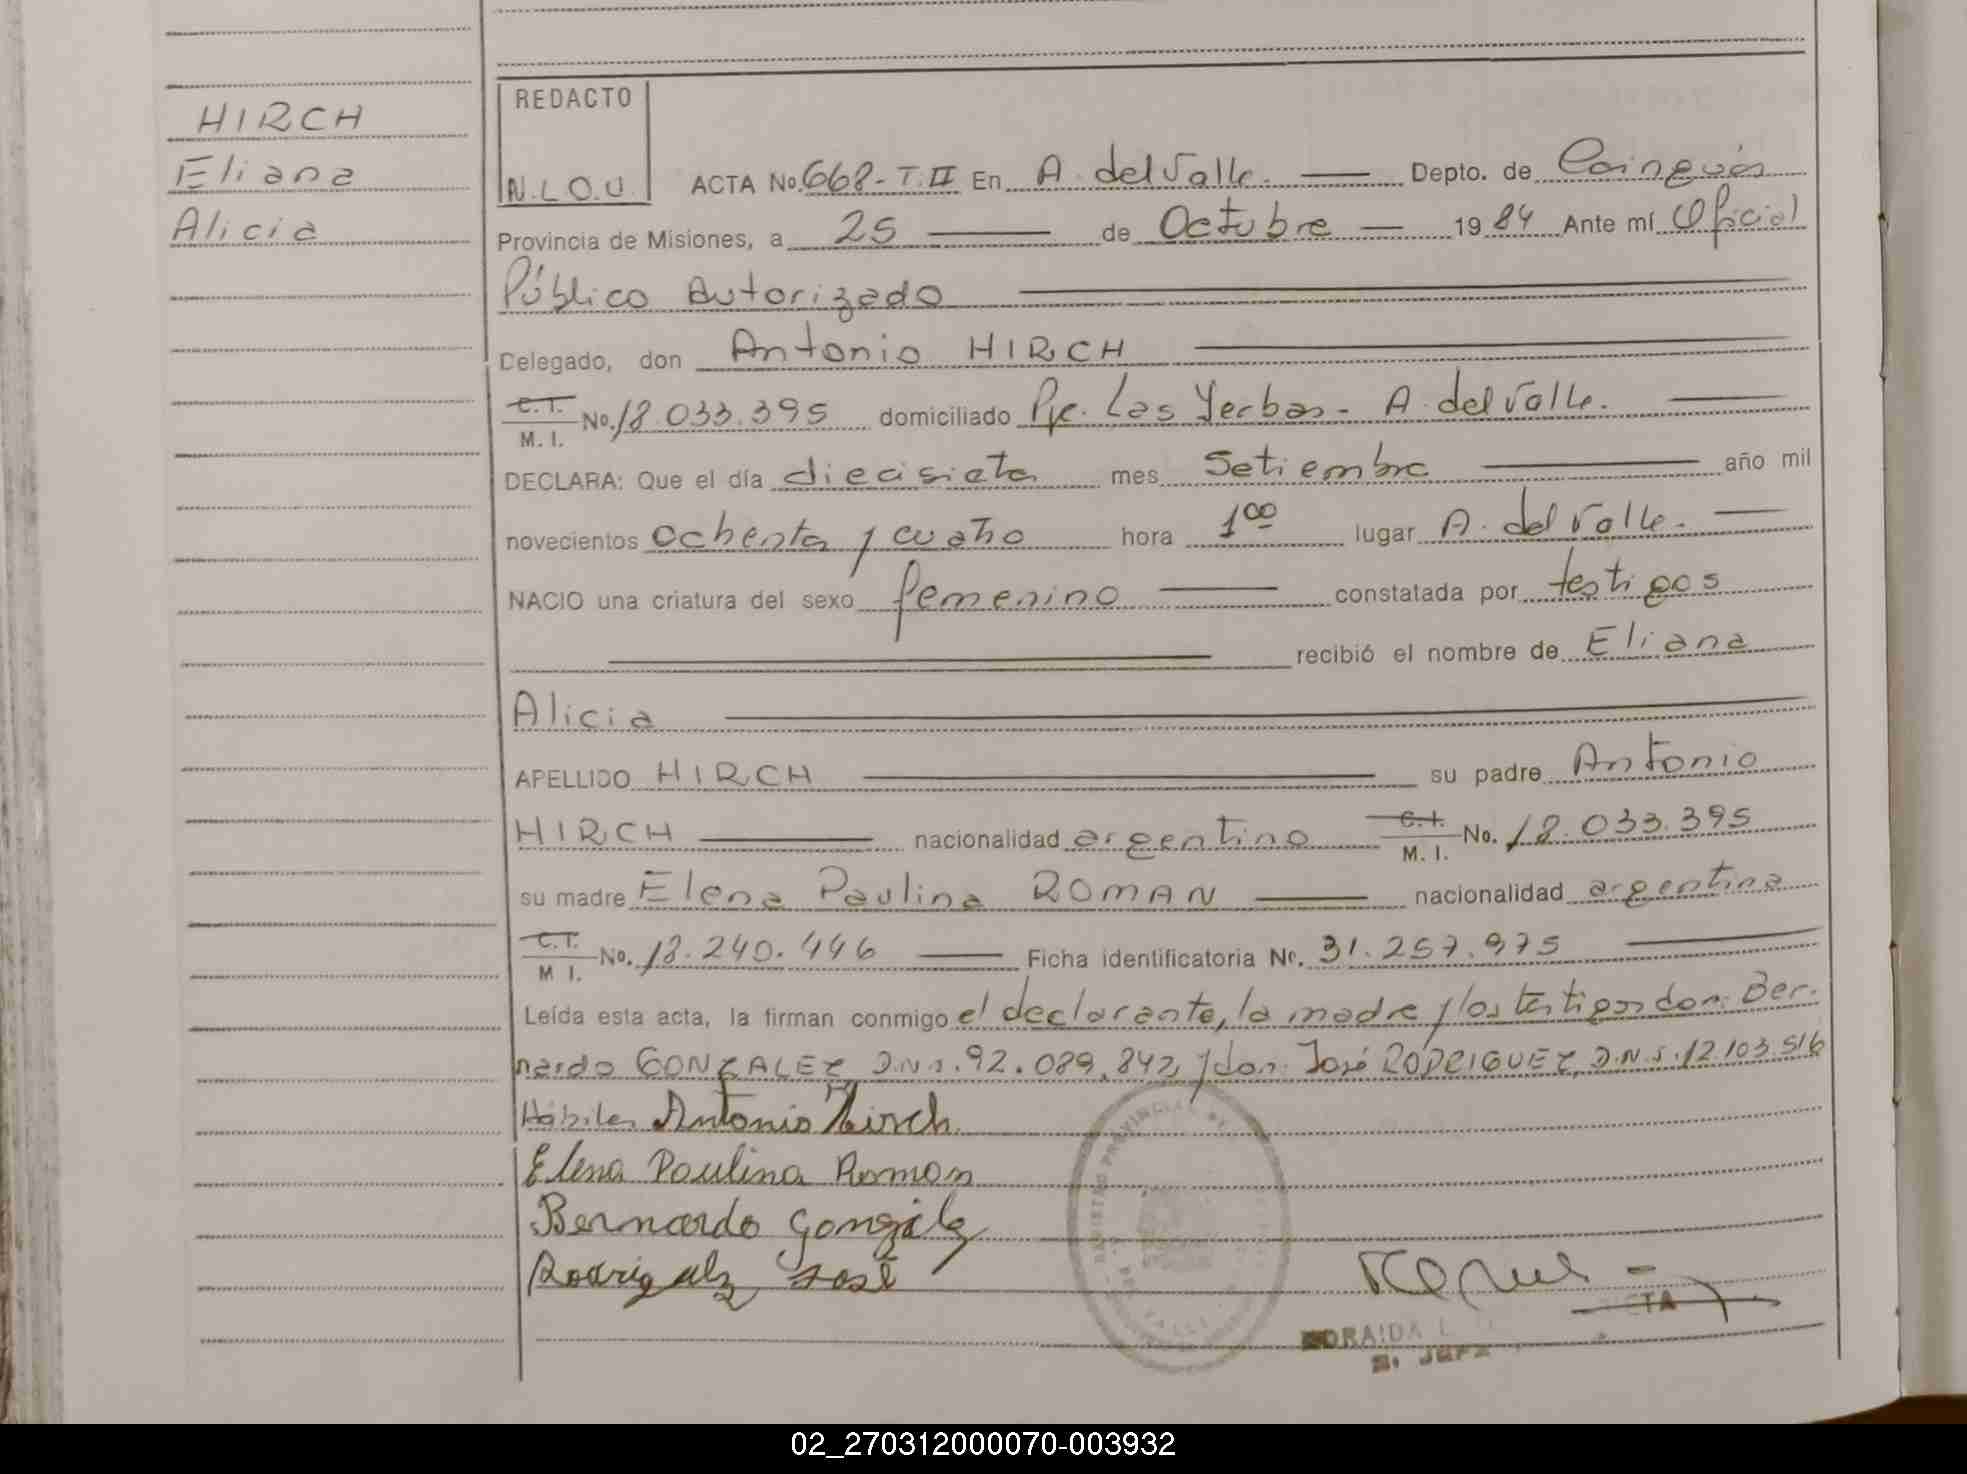 HIRCH
Eliana
Alicia
REDACTO
N.L.O.U.
ACTA No. 668 - T. II En A. del Valle. Depto. de Cainguás
Provincia de Misiones, a 25 de Octubre 19 84 Ante mí Oficial
Público Autorizado
Delegado, don Antonio HIRCH
C.I. M.I. No. 18.033.395 domiciliado Pje. Las Yerbas - A. del Valle.
DECLARA: Que el día diecisiete mes Setiembre año mil
novecientos ochenta y cuatro hora 1 00 lugar A. del Valle.
NACIO una criatura del sexo femenino constatada por testigos
recibió el nombre de Eliana
Alicia
APELLIDO HIRCH su padre Antonio
HIRCH nacionalidad argentino C.I. M.I. No. 18.033.395
su madre Elena Paulina ROMAN nacionalidad argentina
C.I. M I. No. 18.240.446 Ficha identificatoria Nr. 31.257.975
Leída esta acta, la firman conmigo el declarante, la madre y los testigos don: Ber-
nardo GONZALEZ D.N.I. 92.089.842 y don: José RODRIGUEZ, D.N.I. 12.103.516
Hábiles Antonio Hirch
Elena Paulina Roman
Bernardo Gonzálz
Rodrigulz José
REGISTRO PROVINCIAL DE
VALLE
TA
ORAIDA L.
02_270312000070-003932